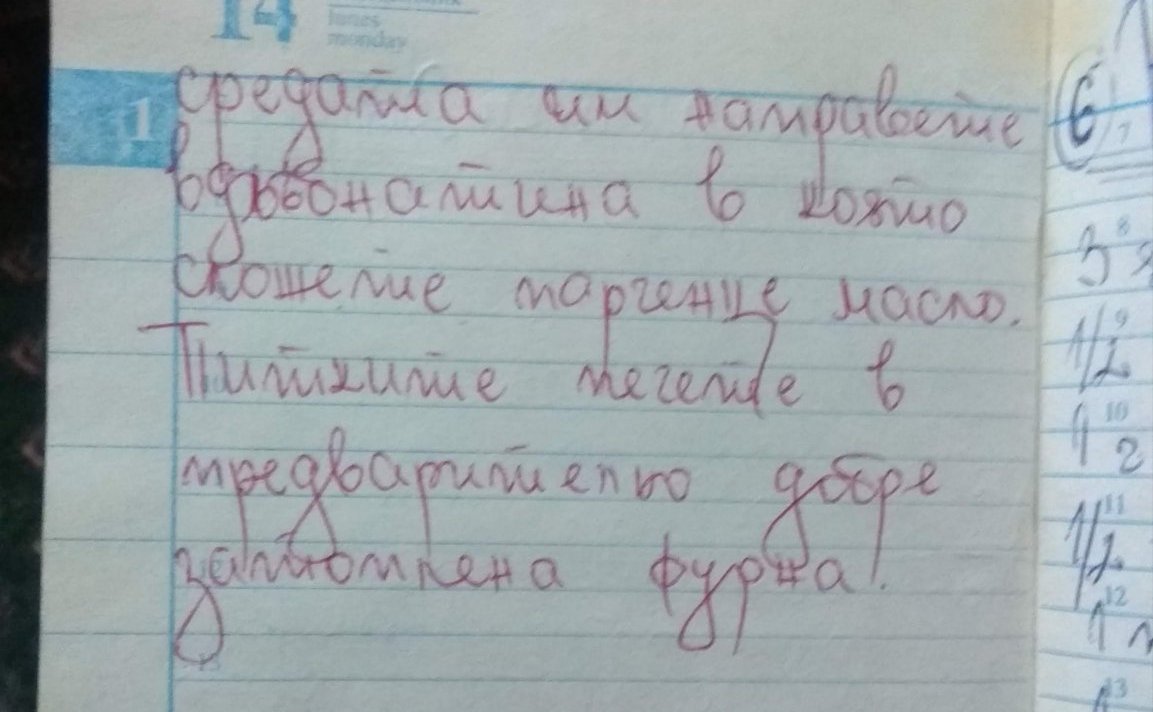 14
lunes
monday
1
средата им направете
вдлъбнатина в която
сложете парченце масло.
Питките печете в
предварително добре
затоплена фурна!
6
7
8
3
9
1/2
10
1 2
11
1/2
12
1
13